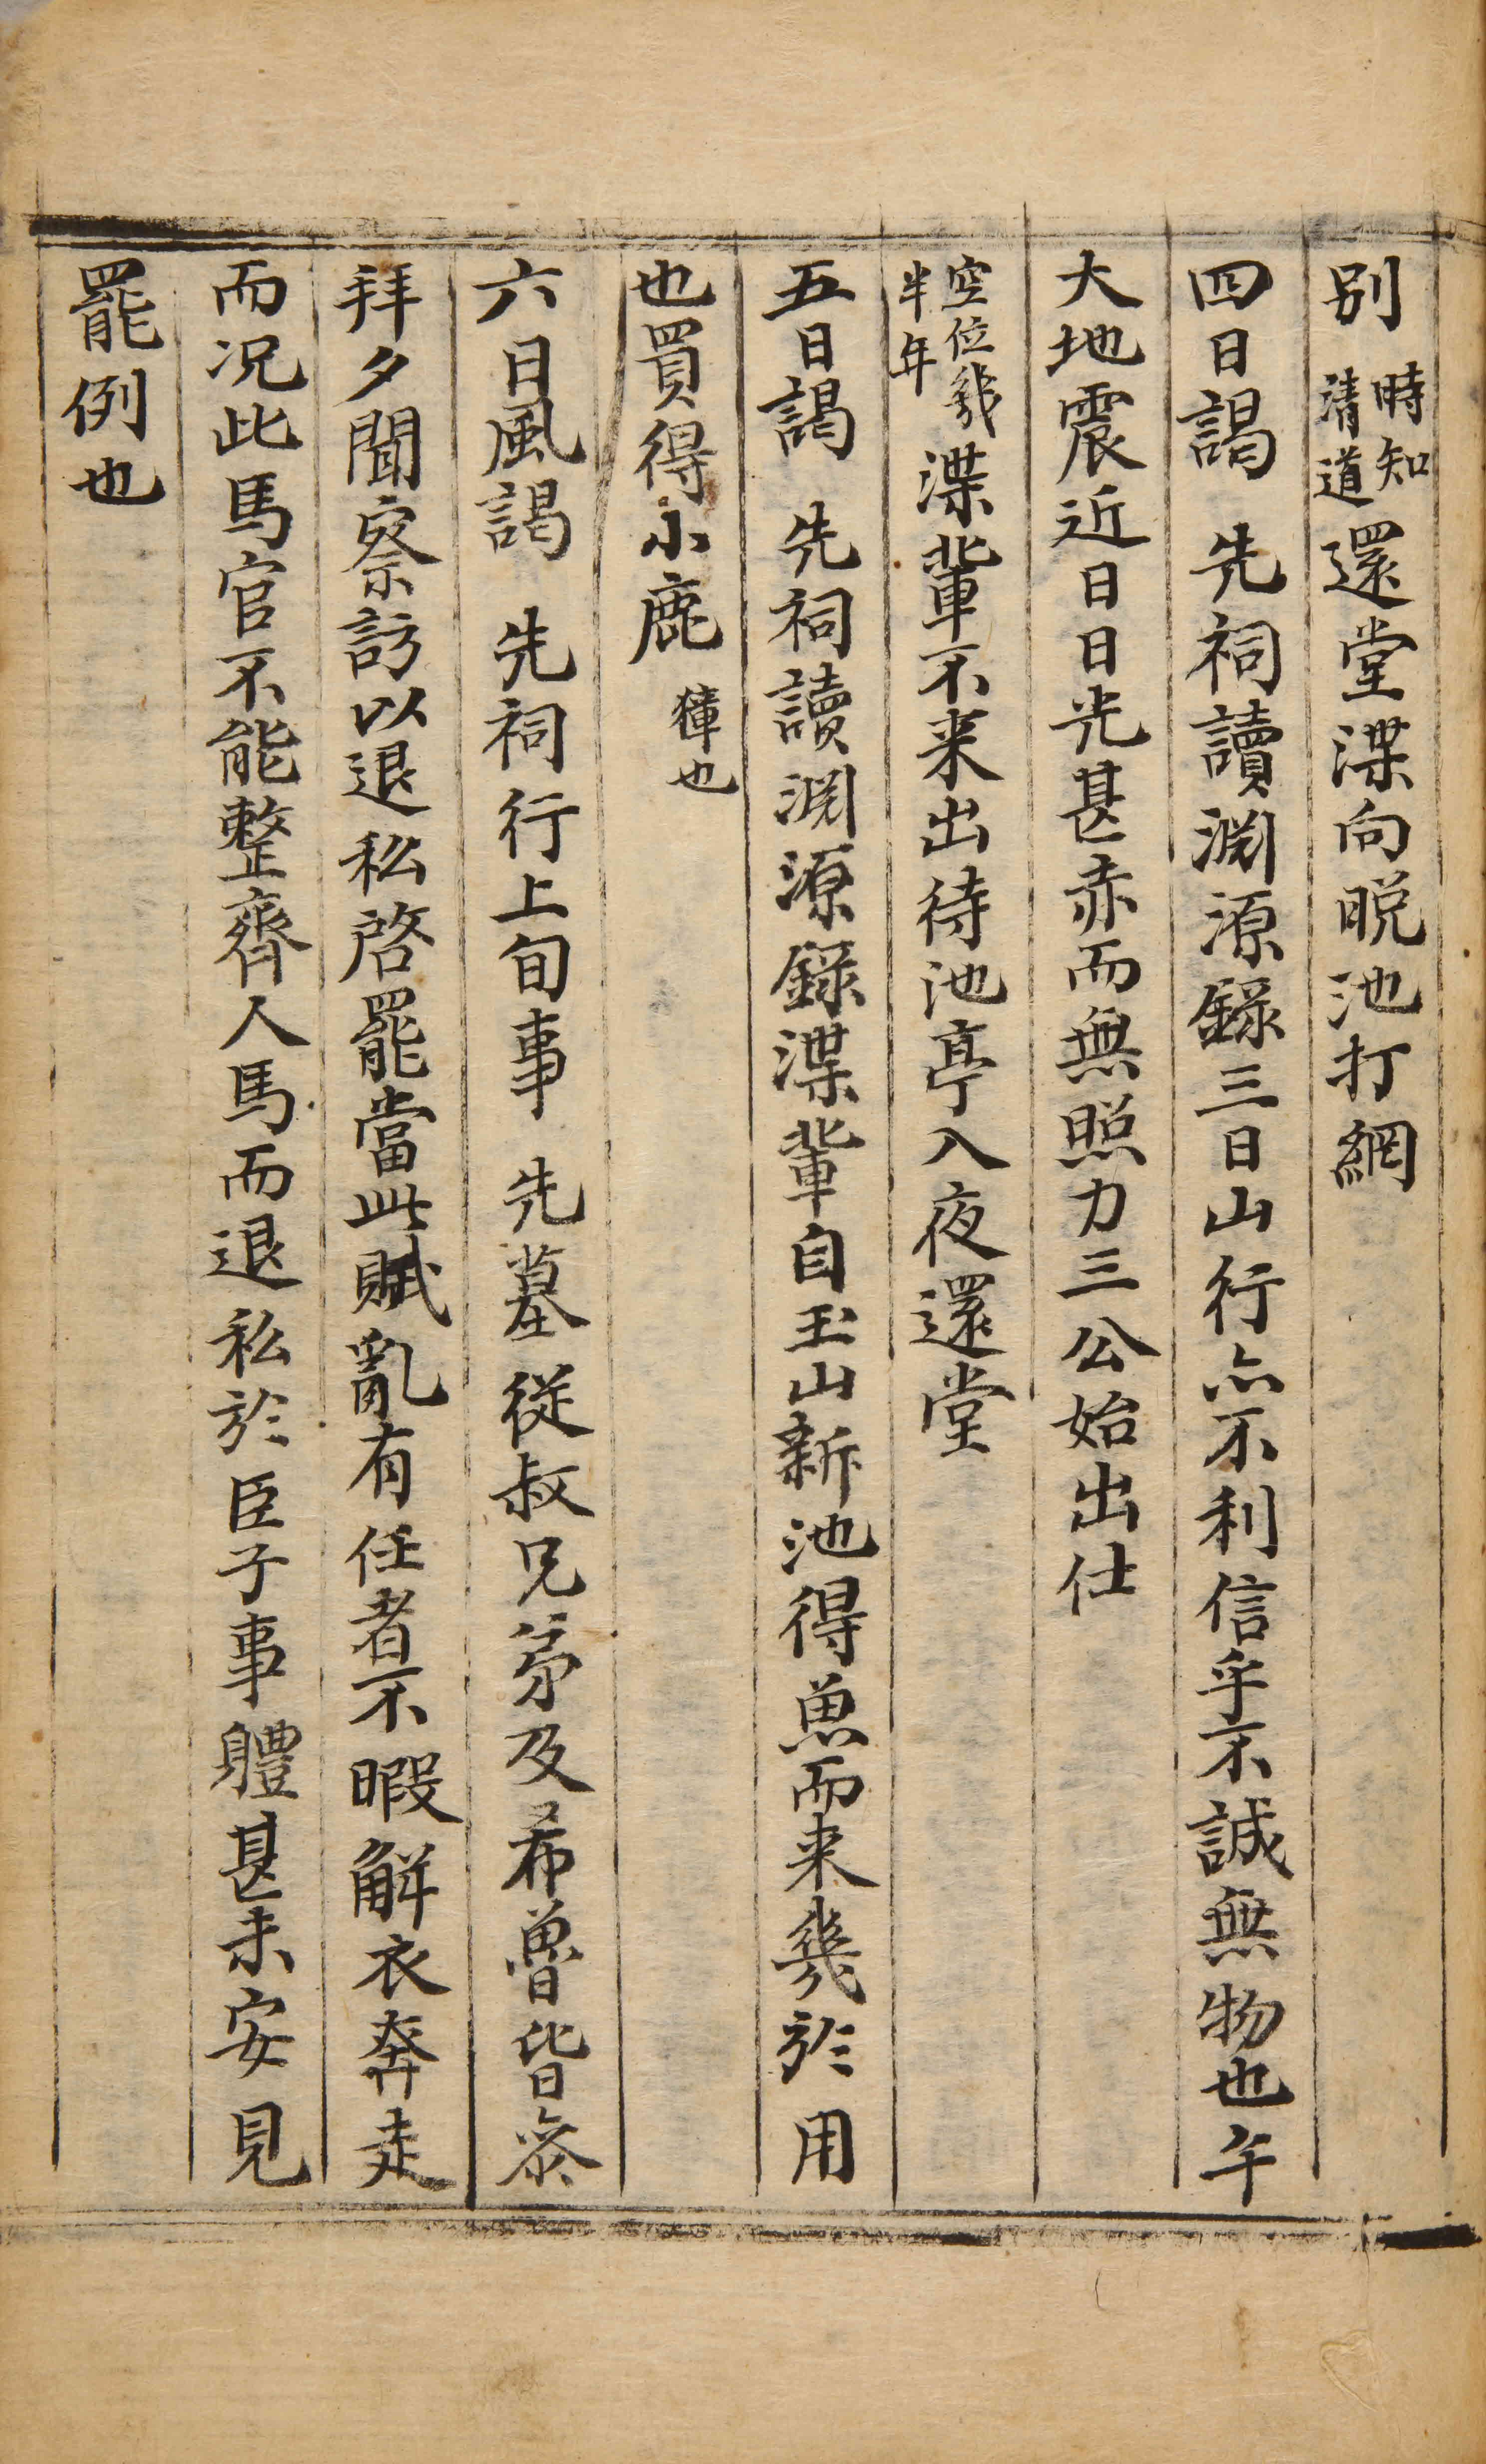 別時知清道還堂渫向晚池打網
四日謁 先祠讀淵源錄三日山行亦不利信乎不誠無物也午
大地震近日日光甚赤而無照力三公始出仕
空位幾半年渫輩不來出待池亭入夜還堂
五日謁 先祠讀淵源錄渫輩自玉山新池得魚而来幾於用
也買得小鹿獐也
六日風謁 先祠行上旬事 先墓從叔兄弟及希魯皆參
拜夕聞察訪以退私啓罷當此賊亂有任者不暇解衣奔走
而况此馬官不能整齊人馬而退私於臣子事體甚未安見
罷例也